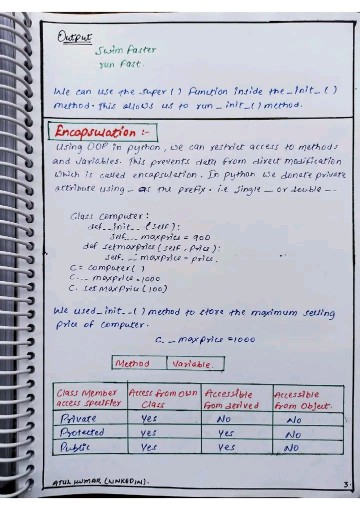 Output
Swim Faster
run Fast.
We can use the super() Function inside the _init_()
method. this allows us to run _init_() method.
Encapsulation :-
Using OOP in python, we can restrict access to methods
and variables. This prevents data from direct modification
which is called encapsulation. In python we donate private
attribute using _ as the prefix. i.e single _ or double --.
Class Computer:
def __init__(self):
self.__maxprice = 900
def setmaxprice(self, price):
self.__maxprice = price.
C = computer()
C.__maxprice = 1000
C. set maxprice (100)
We used _init_() method to store the maximum selling
price of computer.
C.__maxprice = 1000
Method Variable.
Class Member Access from own Accessible Accessible
access specifier Class from derived from Object.
Private Yes No No
Protected Yes Yes No
Public Yes Yes No
ATUL KUMAR (LINKEDIN).
3.